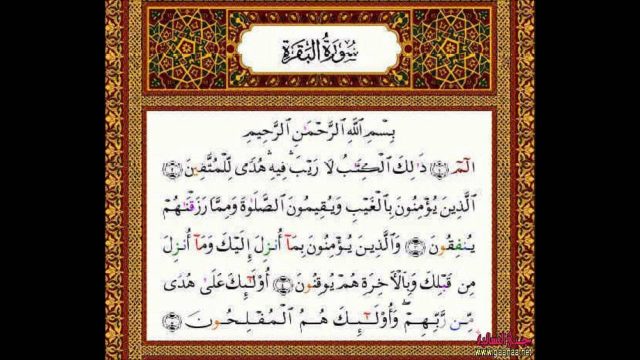 سُورَةُ البَقَرَةِ
بِسْمِ اللَّهِ الرَّحْمَٰنِ الرَّحِيمِ
الٓمٓ ۝١ ذَٰلِكَ الْكِتَٰبُ لَا رَيْبَ ۛ فِيهِ ۛ هُدًى لِّلْمُتَّقِينَ ۝٢
الَّذِينَ يُؤْمِنُونَ بِالْغَيْبِ وَيُقِيمُونَ الصَّلَوٰةَ وَمِمَّا رَزَقْنَٰهُمْ
يُنفِقُونَ ۝٣ وَالَّذِينَ يُؤْمِنُونَ بِمَآ أُنزِلَ إِلَيْكَ وَمَآ أُنزِلَ
مِن قَبْلِكَ وَبِالْأَخِرَةِ هُمْ يُوقِنُونَ ۝٤ أُوْلَٰٓئِكَ عَلَىٰ هُدًى
مِّن رَّبِّهِمْ ۖ وَأُوْلَٰٓئِكَ هُمُ الْمُفْلِحُونَ ۝٥